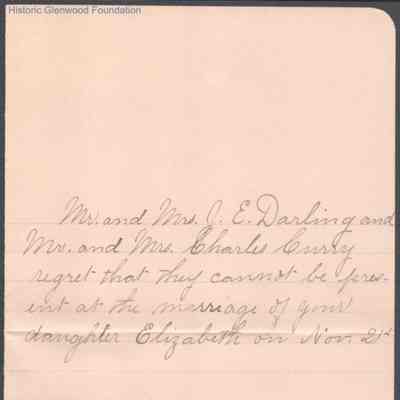 Historic Glenwood Foundation
Mr. and Mrs. J. E. Darling and
Mr. and Mrs. Charles Curry
regret that they cannot be pres-
ent at the marriage of your
daughter Elizabeth on Nov. 21st